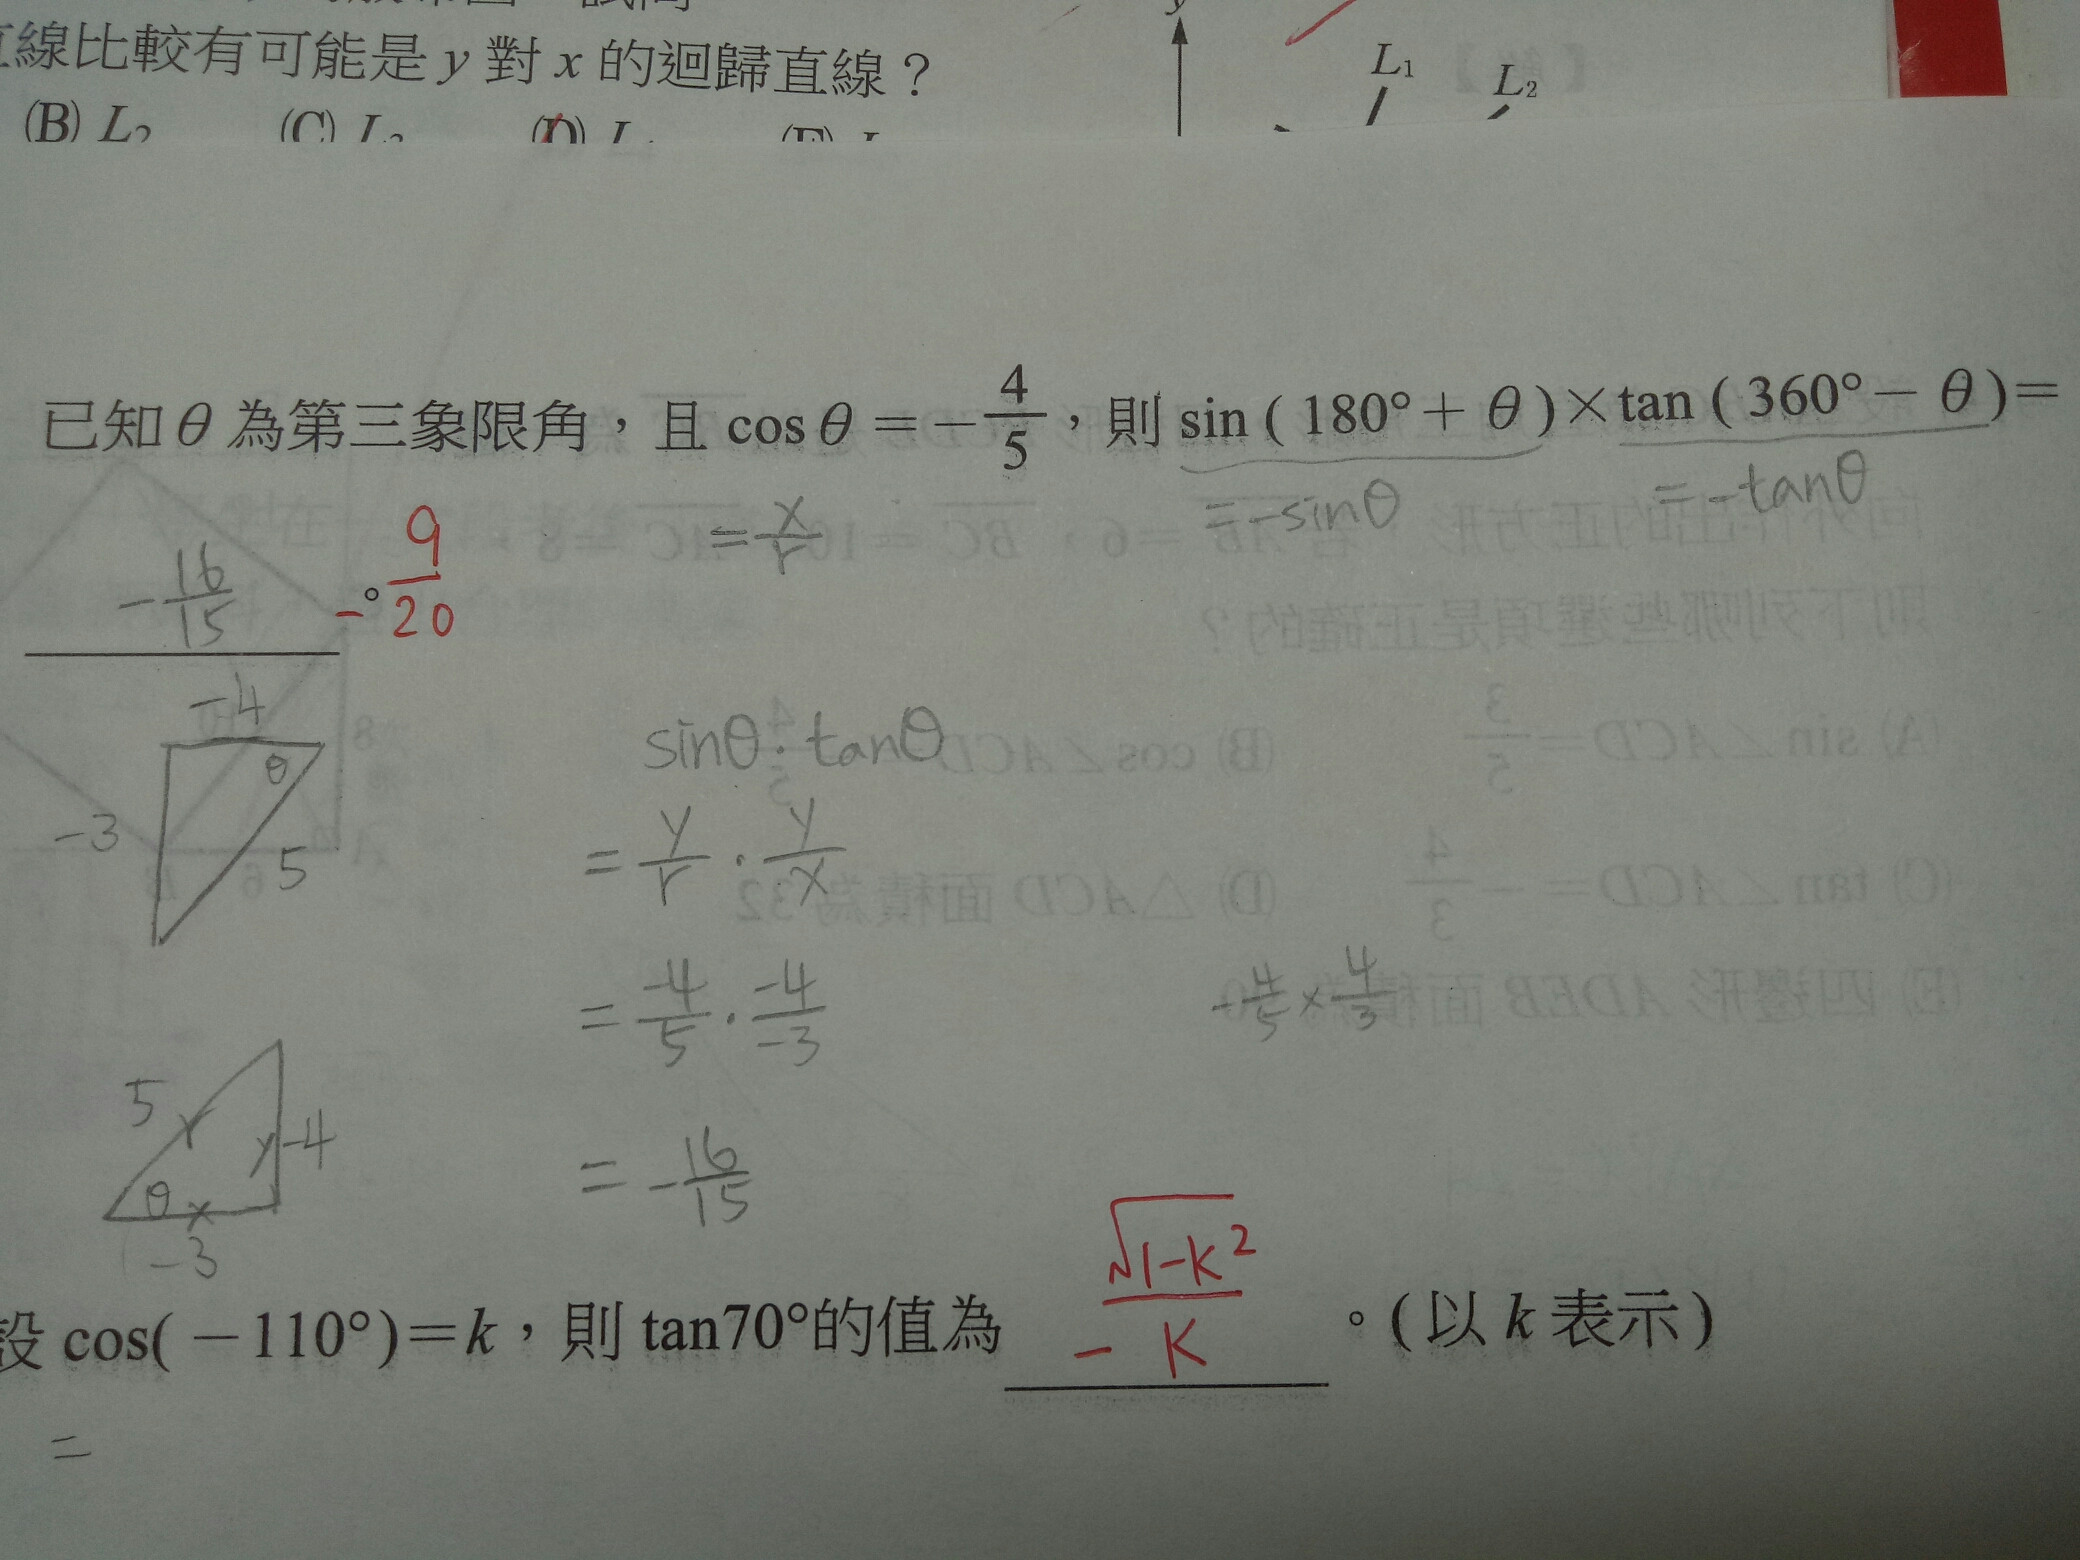 直線比較有可能是 y 對 x 的迴歸直線？
y
L₁
L₂
(B) L₂ (C) L₃ (D) L (E) L
已知 θ 為第三象限角，且 cos θ = -4/5，則 sin ( 180° + θ ) × tan ( 360° - θ ) =
= x/r
= -sinθ
= -tanθ
-16/15
。
- 9/20
-4
θ
-3
5
sinθ · tanθ
= y/r · y/x
= -4/5 · -4/-3
-4/5 × 4/3
= -16/15
5 r
y -4
θ x
-3
設 cos( -110°) = k，則 tan70°的值為 √1-K² / -K 。( 以 k 表示 )
=